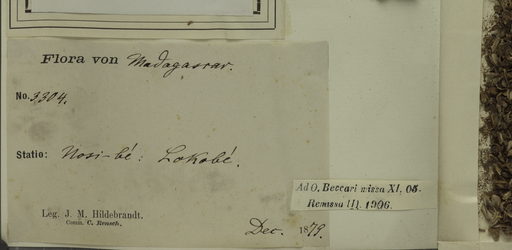 Flora von Madagascar.
No. 3304.
Statio: Nosi-bé: Lokobé.
Ad O. Beccari missa XI. 05-
Remissa III. 1906.
Leg. J. M. Hildebrandt.
Comm. C. Rensch.
Dec. 1879.